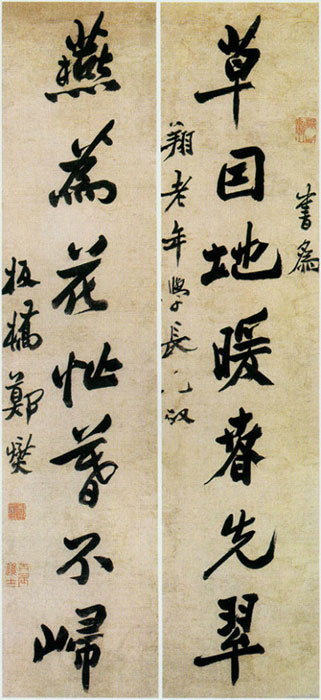 書為
草因地暖春先翠
翔老年學長兄政
燕為花忙暮不歸
板橋鄭燮